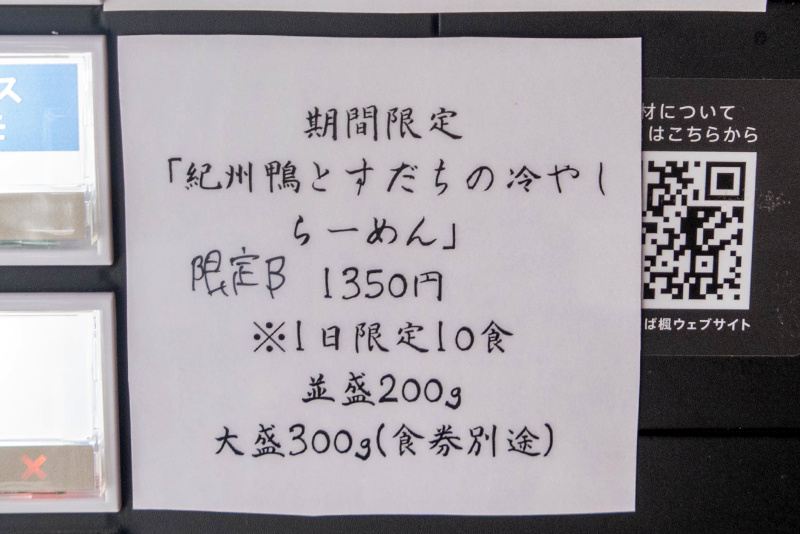 期間限定
「紀州鴨とすだちの冷やし
らーめん」
限定B 1350円
※1日限定10食
並盛200g
大盛300g(食券別途)
ス
材について
はこちらから
ば楓ウェブサイト